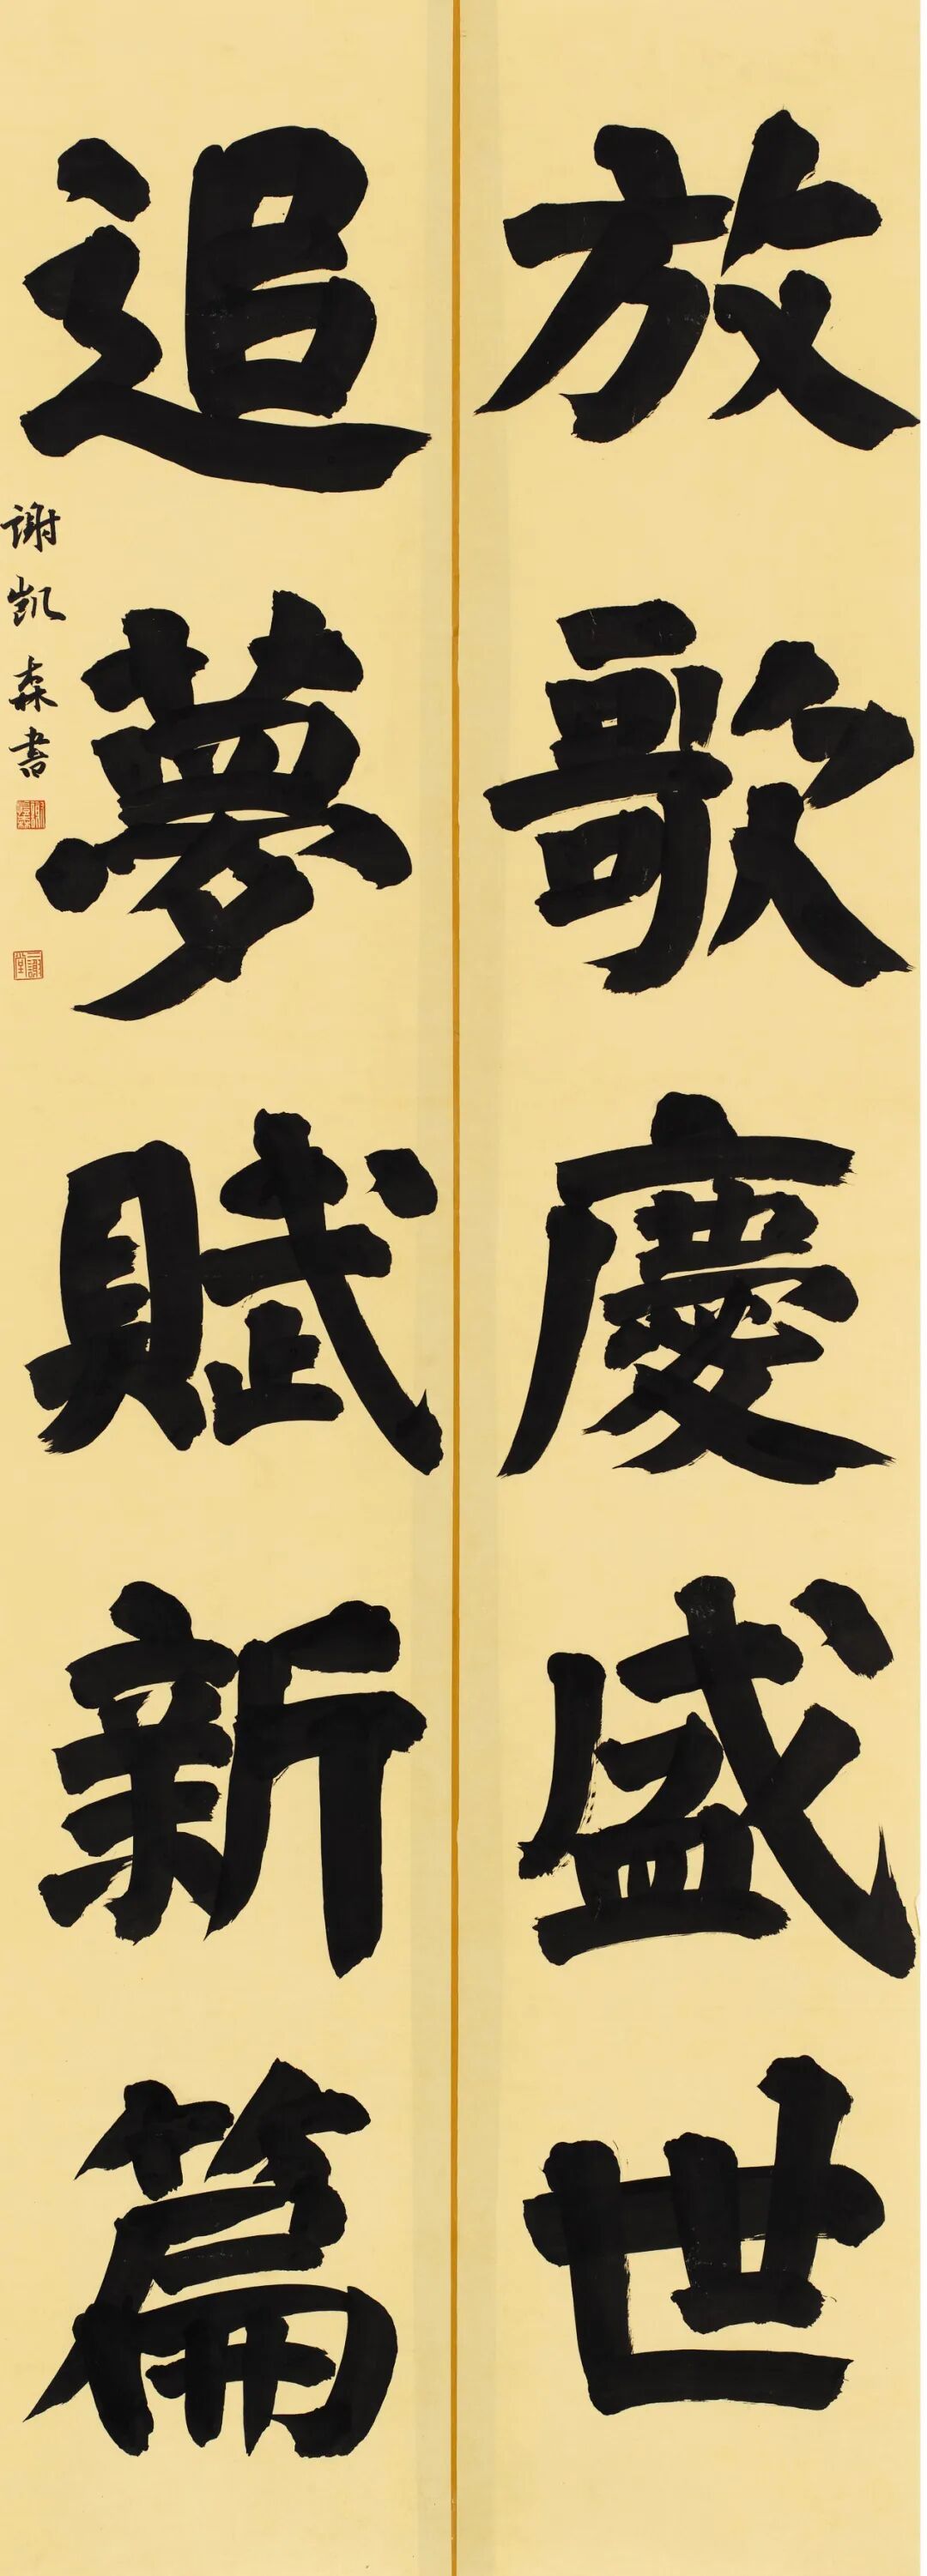 放歌慶盛世
追夢賦新篇
謝凱森書